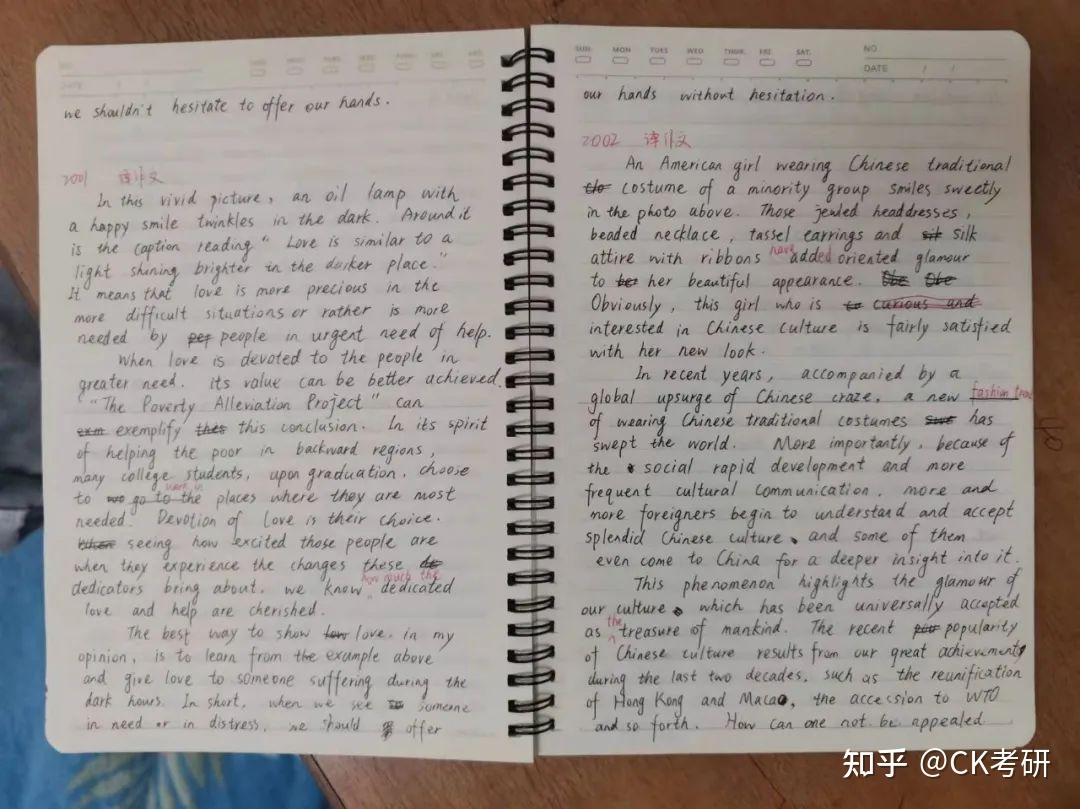 we shouldn't hesitate to offer our hands.
2001 译作文
In this vivid picture, an oil lamp with
a happy smile twinkles in the dark. Around it
is the caption reading "Love is similar to a
light shining brighter in the darker place."
It means that love is more precious in the
more difficult situations or rather is more
needed by people in urgent need of help.
When love is devoted to the people in
greater need. its value can be better achieved.
"The Poverty Alleviation Project" can
exemplify this conclusion. In its spirit
of helping the poor in backward regions,
many college students, upon graduation, choose
to work in the places where they are most
needed. Devotion of love is their choice.
seeing how excited those people are
when they experience the changes these
dedicators bring about, we know how much the dedicated
love and help are cherished.
The best way to show love, in my
opinion, is to learn from the example above
and give love to someone suffering during the
dark hours. In short, when we see someone
in need or in distress, we should offer
SUN. MON TUES WED THUR. FRI. SAT.
NO
DATE / /
our hands without hesitation.
2002 译作文
An American girl wearing Chinese traditional
costume of a minority group smiles sweetly
in the photo above. Those jewled headdresses,
beaded necklace, tassel earrings and silk
attire with ribbons have added oriented glamour
to her beautiful appearance.
Obviously, this girl who is
interested in Chinese culture is fairly satisfied
with her new look.
In recent years, accompanied by a
global upsurge of Chinese craze, a new fashion trend
of wearing Chinese traditional costumes has
swept the world. More importantly, because of
the social rapid development and more
frequent cultural communication, more and
more foreigners begin to understand and accept
splendid Chinese culture, and some of them
even come to China for a deeper insight into it.
This phenomenon highlights the glamour of
our culture which has been universally accepted
as the treasure of mankind. The recent popularity
of Chinese culture results from our great achievements
during the last two decades, such as the reunification
of Hong Kong and Macao, the accession to WTO
and so forth. How can one not be appealed
知乎 @CK考研